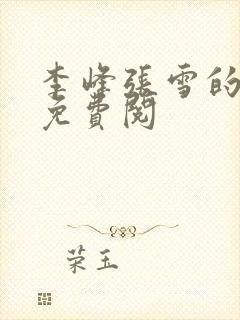 李峰張雪的
免費閱
荣玉